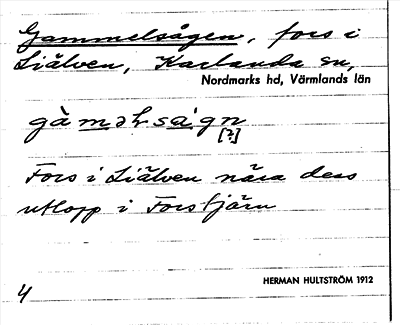 Gammelsågen, fors i
Liälven, Karlanda sn,
Nordmarks hd, Värmlands län
gàməlságn
[?]
Fors i Liälven nära dess
utlopp i Forstjärn
HERMAN HULTSTRÖM 1912
4